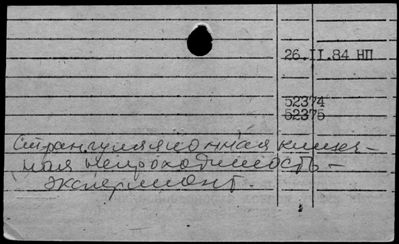 26.II.84 НП
52374
52375
Странгуляционная кишеч-
ная непроходимость -
эксперимент.